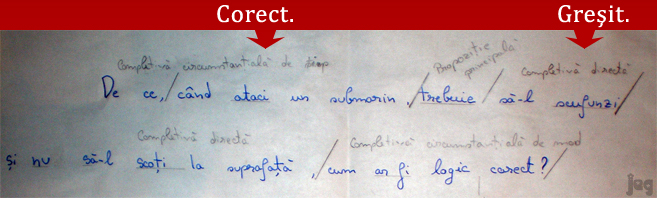 Corect. Greşit.
Completivă circumstanţială de timp Propoziţie principală Completivă directă
De ce, / când ataci un submarin, / trebuie / să-l scufunzi /
Completivă directă Completivă circumstanţială de mod
şi nu să-l scoţi la suprafaţă, / cum ar fi logic corect? /
jag